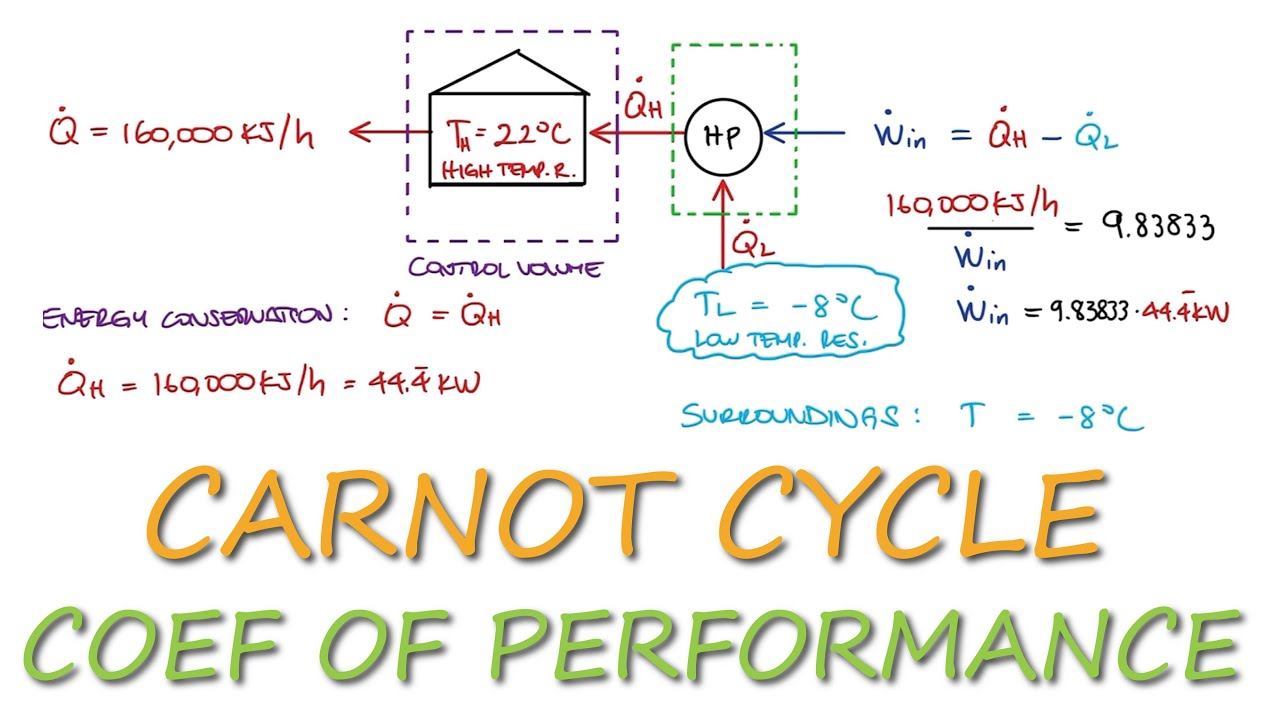 Q̇ = 160,000 KJ/h
T_H = 22°C
HIGH TEMP. R.
Q̇_H
HP
Ẇ_in = Q̇_H − Q̇_L
160,000 KJ/h / Ẇ_in = 9.83833
Q̇_L
CONTROL VOLUME
T_L = -8°C
LOW TEMP. RES.
Ẇ_in = 9.83833 · 44.4̄ KW
ENERGY CONSERVATION: Q̇ = Q̇_H
Q̇_H = 160,000 KJ/h = 44.4̄ KW
SURROUNDINGS: T = -8°C
CARNOT CYCLE
COEF OF PERFORMANCE